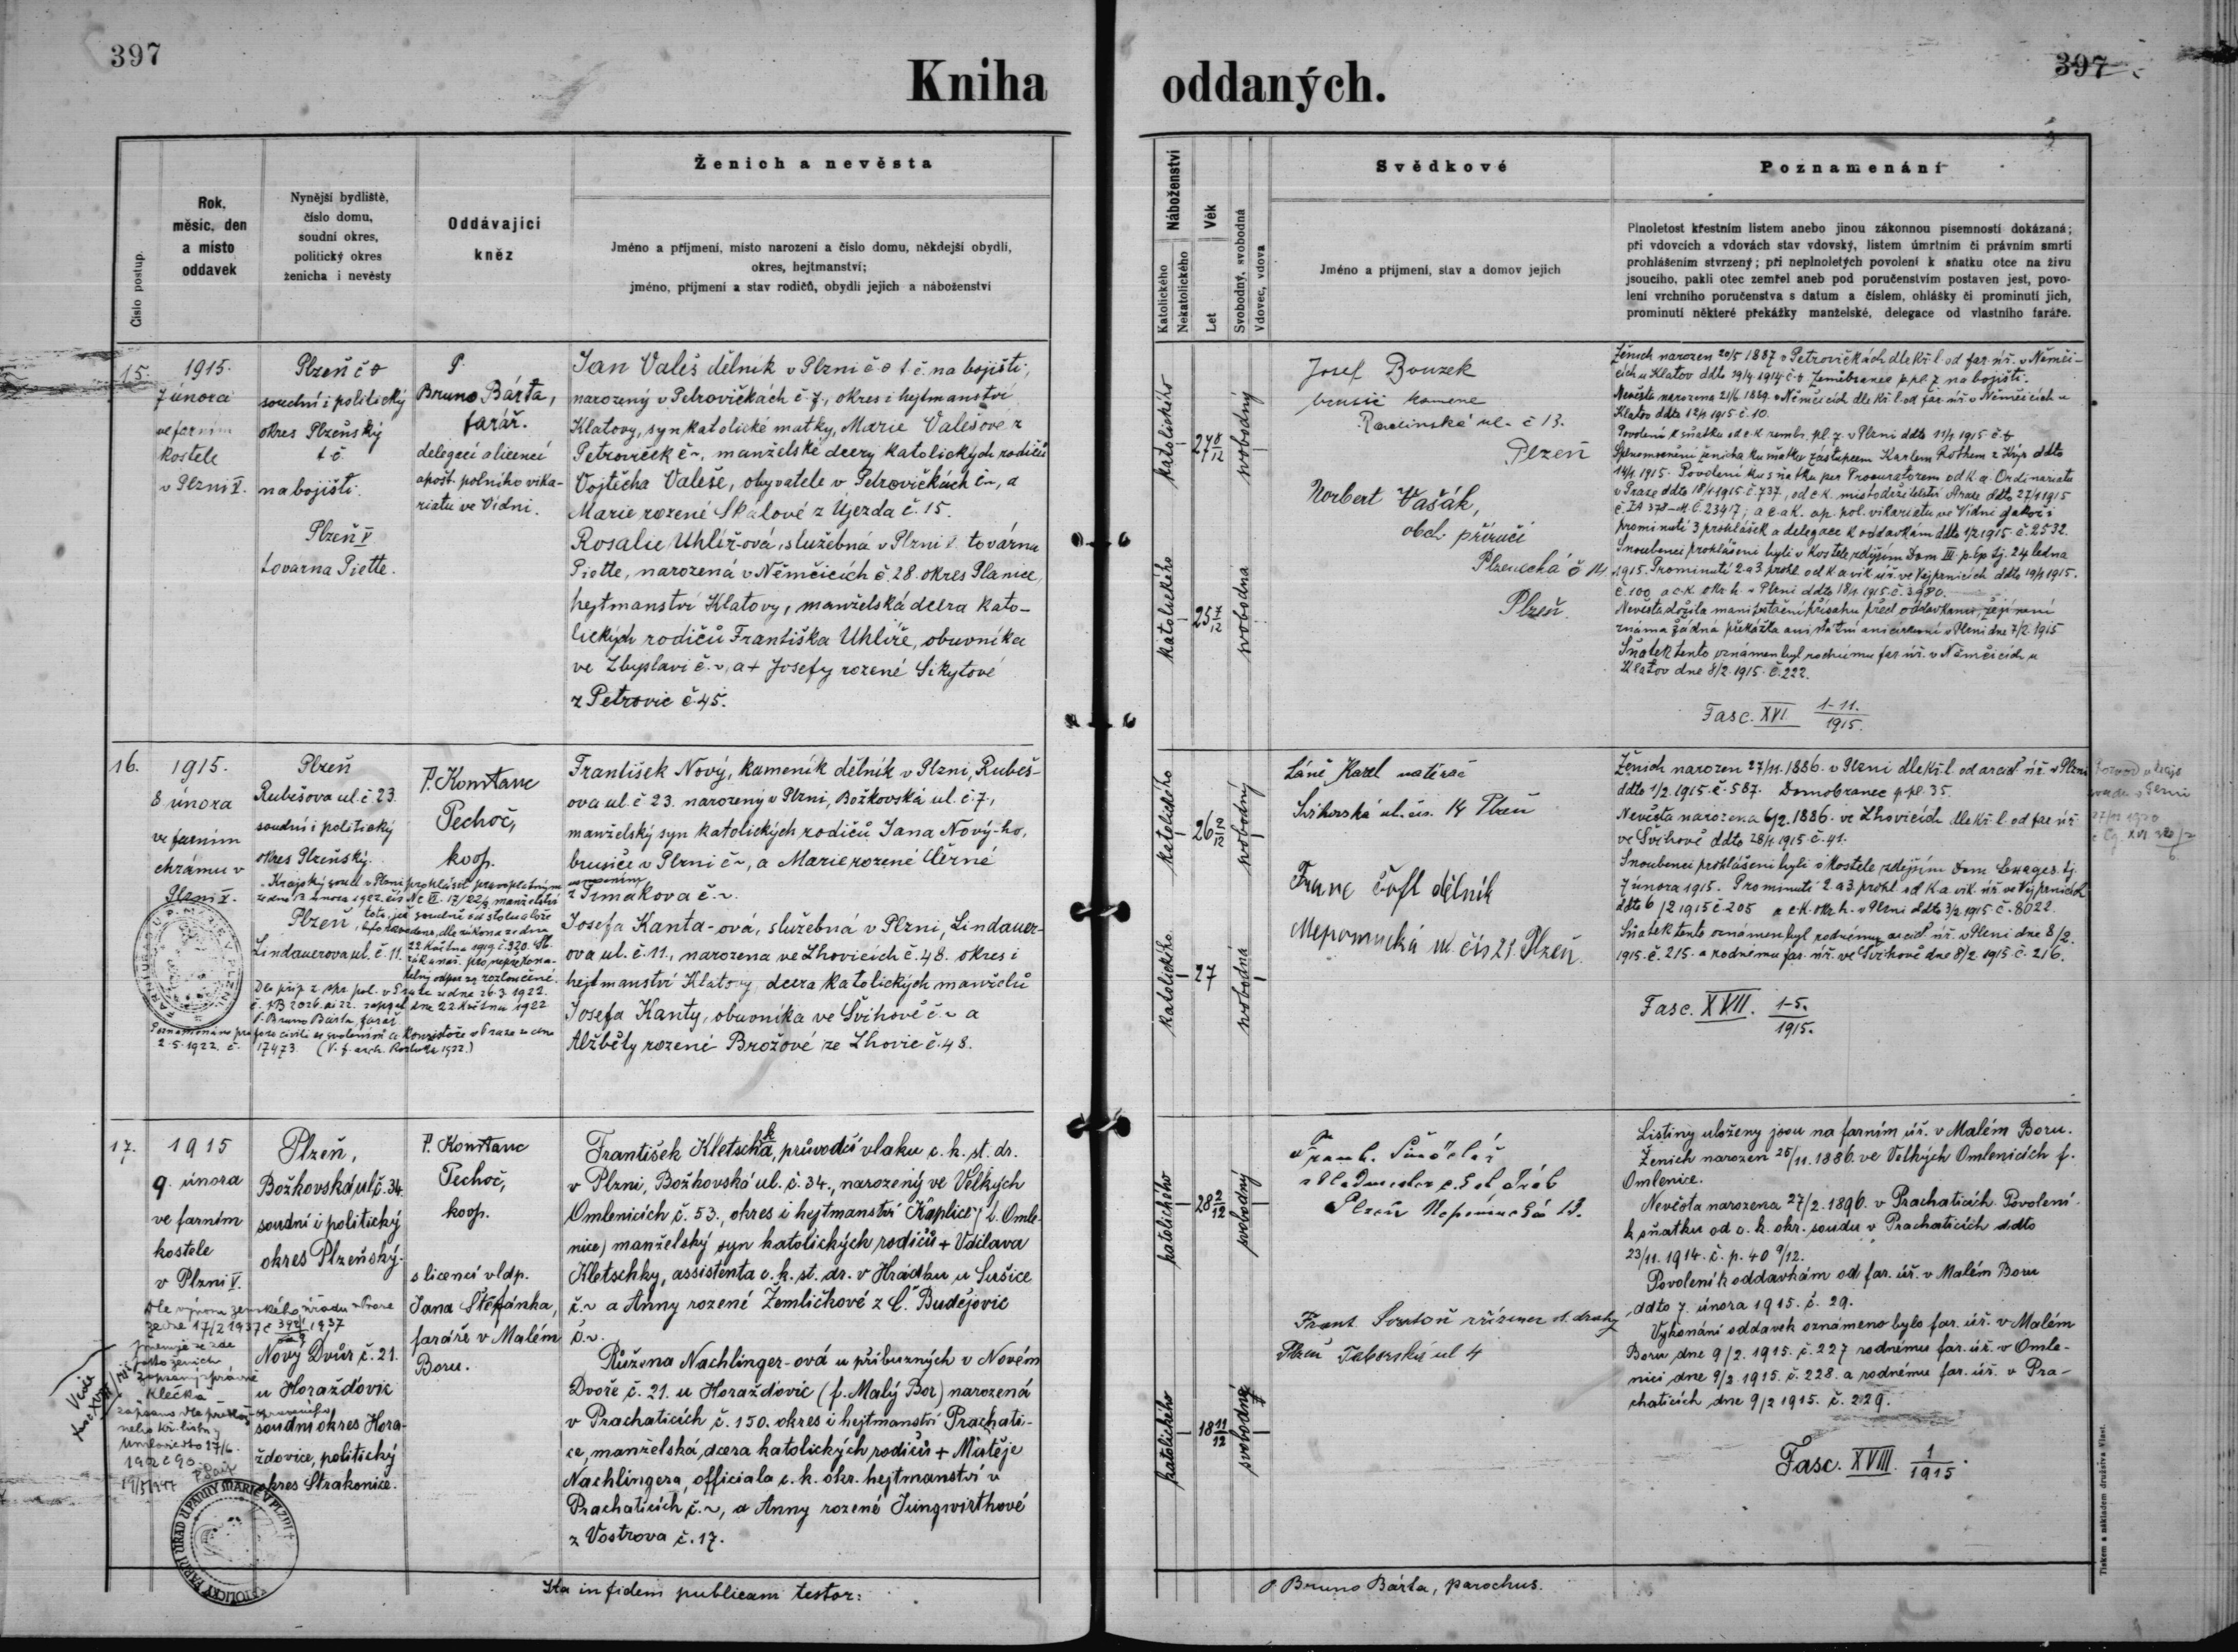 397
Kniha oddaných.
397
Číslo postup.
Rok, měsíc, den a místo oddavek
Nynější bydliště, číslo domu, soudní okres, politický okres ženicha i nevěsty
Oddávající kněz
Ženich a nevěsta
Jméno a příjmení, místo narození a číslo domu, někdejší obydlí,
okres, hejtmanství;
jméno, příjmení a stav rodičů, obydlí jejich a náboženství
Náboženství
Katolického
Nekatolického
Věk
Let
Svobodný, svobodná
Vdovec, vdova
Svědkové
Jméno a příjmení, stav a domov jejich
Poznamenání
Plnoletost křestním listem anebo jinou zákonnou písemností dokázaná;
při vdovcích a vdovách stav vdovský, listem úmrtním či právním smrti
prohlášením stvrzený; při neplnoletých povolení k sňatku otce na živu
jsoucího, pakli otec zemřel aneb pod poručenstvím postaven jest, povo-
lení vrchního poručenstva s datum a číslem, ohlášky či prominutí jich,
prominutí některé překážky manželské, delegace od vlastního faráře.
15.
1915.
7 února
ve farním
kostele
v Plzni I.
Plzeň č
soudní i politický
okres Plzeňský
t. č.
na bojišti.
Plzeň V
továrna Piette.
P.
Bruno Bárta,
farář.
delegací a licencí
apošt. polního vika-
riatu ve Vídni.
Jan Valeš dělník v Plzni t. č. na bojišti,
narozený v Petrovičkách č. 7, okres i hejtmanství
Klatovy, syn katolické matky, Marie Valešove z
Petroviček č ~, manželské dcery katolických rodičů
Vojtěcha Valeše, obyvatele v Petrovičkách č ~, a
Marie rozené Skalové z Újezda č. 15.
Rosalie Uhlíř-ová, služebná v Plzni továrna
Piette, narozená v Němčicích č. 28. okres Planice,
hejtmanství Klatovy, manželská dcera kato-
lických rodičů Františka Uhlíře, obuvníka
ve Zbyslavi č. ~, a + Josefy rozené Sikytové
z Petrovic č. 45.
katolického
27 8/12
svobodný
katolického
25 7/12
svobodna
Josef Bouzek
brusič kamene
Radčinská ul. č 13.
Plzeň
Norbert Vašák,
obch příručí
Plzenecká č 14
Plzeň.
Ženich narozen 20/5 1887 v Petrovičkách dle kř. l. od far. úř. v Němči-
cích u Klatov ddto 29/4 1914 č. Zeměbranec p. pl. 7 na bojišti.
Nevěsta narozena 21/6 1889. v Němčicích dle kř. l. od far. úř. v Němčicích u
Klatov ddto 12/1 1915 č. 10.
Povolení k sňatku od c. k. zembr. pl. 7. v Plzni ddto 11/1 1915 č.
Splnomocnění ženicha ku sňatku zástupcem Karlem Rothem z Kyjr ddto
14/1 1915. Povolení ku sňatku per Procuratorem od k. a. Ordinariatu
v Praze ddto 18/1 1915 č. 737, od c. k. místodržitelství Praze ddto 27/1 1915
č. 23417, a c. a k. ap. pol. vikariatu ve Vídni jakož i
prominutí 3 prohlášek a delegace k oddavkám ddto 1/2 1915 č. 2532.
Snoubenci prohlášeni byli v kostele zdejším Dom III. p. Ep tj. 24 ledna
1915. Prominutí 2. a 3 prohl. od k. a. vik. úř. ve Vejprnicích ddto 19/1 1915.
č. 100 a c. k. okr. h. v Plzni ddto 18/1 1915 č. 3980.
Nevěsta složila manifestační přísahu před oddavkami, že jí není
známa žádná překážka ani státní ani církevní v Plzni dne 7/2. 1915
Sňatek tento oznámen byl rodnému far. úř. v Němčicích u
Klatov dne 8/2. 1915. č. 222.
Fasc. XVI 1-11. 1915.
16.
1915.
8 února
ve farním
chrámu v
Plzni I.
Plzeň
Rubešova ul. č 23.
soudní i politický
okres Plzeňský.
Krajský soud v Plzni prohlásil pravoplatným usnesením
ze dne 12 února 1922. čís Nc VI. 17/22/3 manželství
toto, jež soudně od stolu a lože
Plzeň, bylo rozvedeno, dle zákona ze dne
22 května 1919. č. 320. Sb.
Lindauerova ul. č. 11. zák a nař. pro nepřekona-
telný odpor za rozloučené.
Dle příp. z. spr. pol. v Praze ze dne 26. 3. 1922.
zapsal dne 22 května 1922
P. Bruno Bárta, farář
Poznamenáno pro foro civili se svolením a. Konsistoře v Praze ze dne
2. 5. 1922. č. 17473.
P. Konstanc
Pechoč,
koop.
František Nový, kameník dělník v Plzni, Rubeš-
ova ul. č 23. narozený v Plzni, Božkovská ul. č. 7,
manželský syn katolických rodičů Jana Nový-ho,
brusiče v Plzni č ~, a Marie rozené Černé
z Timakova č. ~.
Josefa Kanta-ová, služebná v Plzni, Lindauer-
ova ul. č. 11., narozena ve Lhovicích č. 48. okres i
hejtmanství Klatovy dcera katolických manželů
Josefa Kanty, obuvníka ve Švihově č. ~ a
Alžběty rozené Brožové ze Lhovic č. 48.
katolického
26 10/12
svobodný
katolického
27
svobodná
Láně Karel natěrač
Švihovská ul. čís. 14 Plzeň
Franc Čofl dělník
Nepomucká ul čís 21. Plzeň.
Ženich narozen 27/11. 1886. v Plzni dle kř. l. od arcid úř. v Plzni
ddto 1/2. 1915. č. 587. Domobranec p. pl. 35.
Nevěsta narozena 6/2. 1886. ve Lhovicích dle kř. l. od far. úř
ve Švihově ddto 28/1. 1915. č. 41.
Snoubenci prohlášeni byli v kostele zdejším Dom Sexages. tj.
7 února 1915. Prominutí 2 a 3. prohl. od k. a. vik. úř. ve Vejprnicích
ddto 6/2 1915 č. 205 a c. k. okr. h. v Plzni ddto 3/2. 1915 č. 8022.
Sňatek tento oznámen byl rodnému arcid úř. v Plzni dne 8/2.
1915. č. 215. a rodnému far. úř. ve Švihově dne 8/2. 1915. č. 216.
Fasc. XVII. 1-5. 1915.
17.
1915
9. února
ve farním
kostele
v Plzni V.
Dle výnosu zemského úřadu v Praze
ze dne 17/2 1937 č
jmenuje se zde
jako ženich
zapsaný správně
Klečka
19/5 1947
Vide
Plzeň,
Božkovská ul č. 34.
soudní i politický
okres Plzeňský.
Nový Dvůr č. 21.
u Horažďovic
soudní okres Hora-
žďovice, politický
okres Strakonice.
P. Konstanc
Pechoč,
koop.
s licencí vldp.
Jana Štěpánka,
faráře v Malém
Boru.
František Kletschka, průvodčí vlaku c. k. st. dr.
v Plzni, Božkovská ul. č. 34., narozený ve Velkých
Omlenicích č. 53., okres i hejtmanství Kaplice (f. Omle-
nice) manželský syn katolických rodičů + Václava
Kletschky, assistenta c. k. st. dr. v Hrádku u Sušice
č. ~ a Anny rozené Žemličkové z Č. Budějovic
č. ~.
Růžena Nachlinger-ová u příbuzných v Novém
Dvoře č. 21. u Horažďovic (f. Malý Bor) narozená
v Prachaticích č. 150. okres i hejtmanství Prachati-
ce, manželská dcera katolických rodičů + Matěje
Nachlingera, officiala c. k. okr. hejtmanství v
Prachaticích č. ~, a Anny rozené Jungwirthové
z Vostrova č. 17.
katolického
28 2/12
svobodný
katolického
18 11/12
svobodná
Plzeň Nepomucká 13.
Frant. zřízenec st. dráhy
Plzeň Táborská ul 4
Listiny uloženy jsou na farním úř. v Malém Boru.
Ženich narozen 25/11. 1886. ve Velkých Omlenicích f.
Omlenice.
Nevěsta narozena 27/2. 1896. v Prachaticích. Povolení
k sňatku od c. k. okr. soudu v Prachaticích ddto
23/11. 1914. č. p. 40 9/12.
Povolení k oddavkám od far. úř. v Malém Boru
ddto 7. února 1915. č. 29.
Vykonání oddavek oznámeno bylo far. úř. v Malém
Boru dne 9/2. 1915. č. 227 rodnému far. úř. v Omle-
nici dne 9/2. 1915. č. 228. a rodnému far. úř. v Pra-
chaticích dne 9/2 1915. č. 229.
Fasc. XVIII. 1 1915.
Ita in fidem publicam testor:
P. Bruno Bárta, parochus.
Tiskem a nákladem družstva Vlast.